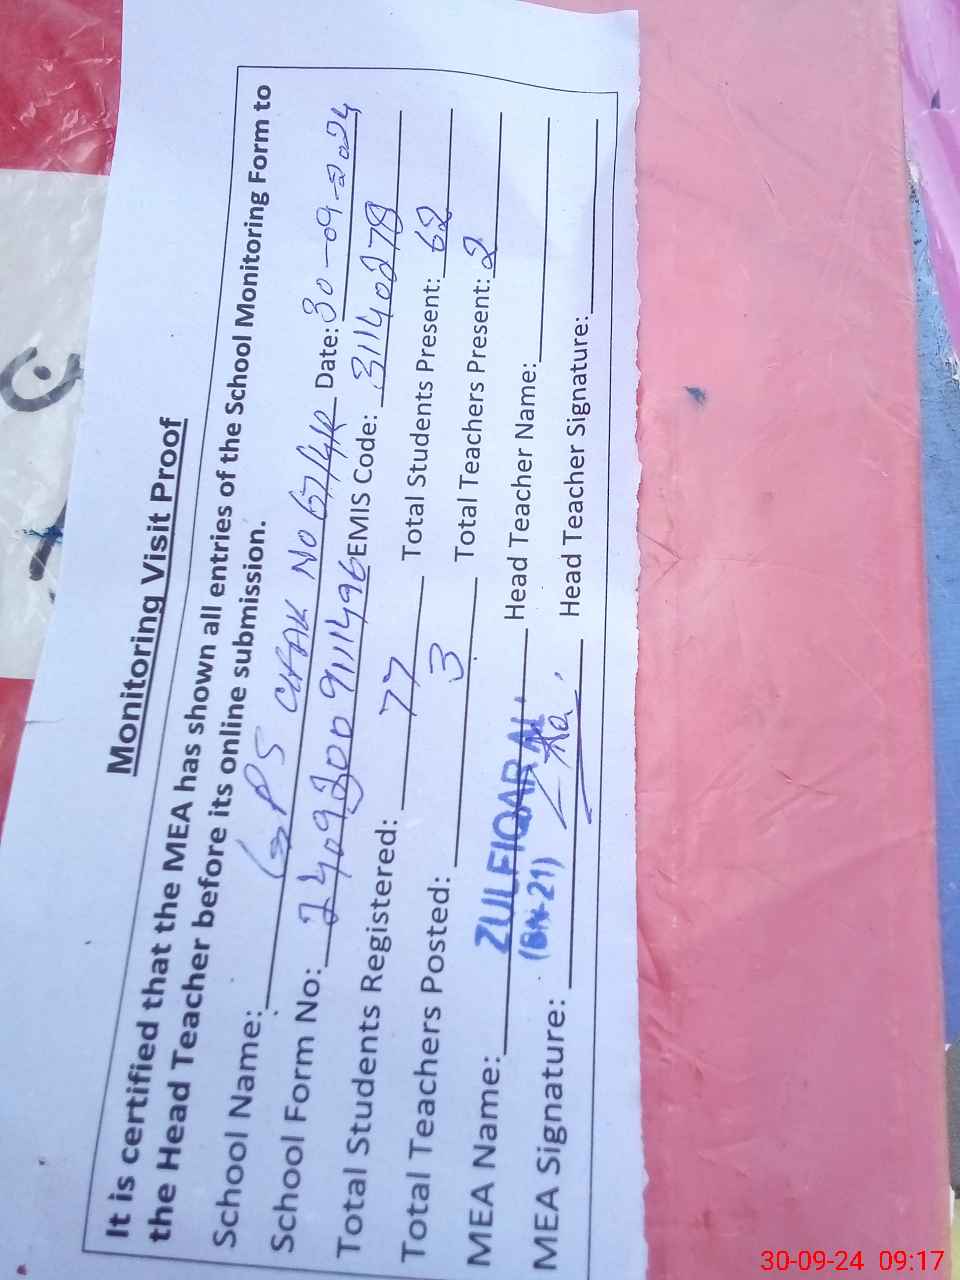 Monitoring Visit Proof
It is certified that the MEA has shown all entries of the School Monitoring Form to
the Head Teacher before its online submission.
School Name: GPS CHAK NO 67/4R Date: 30-09-2024
School Form No: 2409300911496 EMIS Code: 31140278
Total Students Registered: 77 Total Students Present: 62
Total Teachers Posted: 3 Total Teachers Present: 2
MEA Name: ZULFIQAR ALI Head Teacher Name:
(BN-21)
MEA Signature: Head Teacher Signature:
30-09-24 09:17